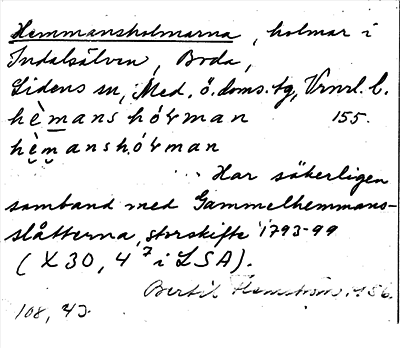 Hemmansholmarna, holmar i
Indalsälven, Boda,
Lidens sn, Med. ö. doms. tg, Vrnrl. l.
hèmanshóɽman 155.
hèmanshóɽman
Har säkerligen
samband med Gammelhemmans-
slåtterna, storskifte 1793-99
(X30, 4⁷ i LSA).
Bertil 1956.
108, 43.